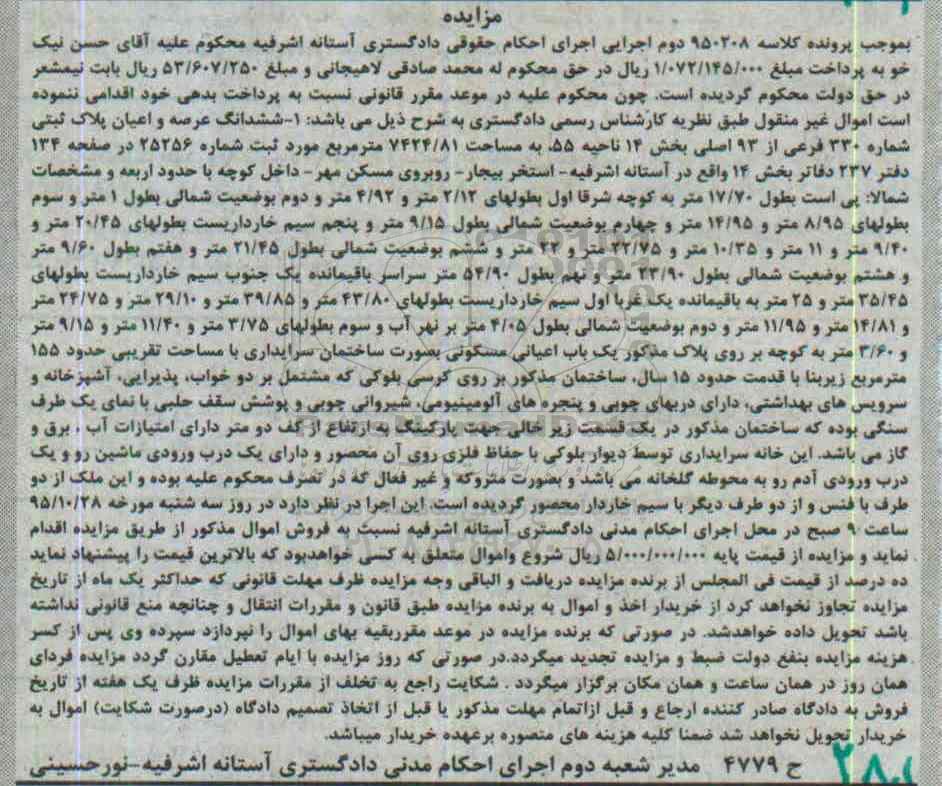 مزایده
بموجب پرونده کلاسه ۹۵۰۲۰۸ دوم اجرایی اجرای احکام حقوقی دادگستری آستانه اشرفیه محکوم علیه آقای حسن نیک
خو به پرداخت مبلغ ۱/۰۷۲/۱۴۵/۰۰۰ ریال در حق محکوم له محمد صادقی لاهیجانی و مبلغ ۵۳/۶۰۷/۲۵۰ ریال بابت نیمشعر
در حق دولت محکوم گردیده است. چون محکوم علیه در موعد مقرر قانونی نسبت به پرداخت بدهی خود اقدامی ننموده
است اموال غیر منقول طبق نظریه کارشناس رسمی دادگستری به شرح ذیل می باشد: ۱-ششدانگ عرصه و اعیان پلاک ثبتی
شماره ۳۳۰ فرعی از ۹۳ اصلی بخش ۱۴ ناحیه ۵۵، به مساحت ۷۴۲۴/۸۱ مترمربع مورد ثبت شماره ۲۵۲۵۶ در صفحه ۱۳۴
دفتر ۲۳۷ دفاتر بخش ۱۴ واقع در آستانه اشرفیه- استخر بیجار- روبروی مسکن مهر- داخل کوچه با حدود اربعه و مشخصات
شمالا: پی است بطول ۱۷/۷۰ متر به کوچه شرقا اول بطولهای ۲/۱۲ متر و ۴/۹۲ متر و دوم بوضعیت شمالی بطول ۱ متر و سوم
بطولهای ۸/۹۵ متر و ۱۴/۹۵ متر و چهارم بوضعیت شمالی بطول ۹/۱۵ متر و پنجم سیم خارداریست بطولهای ۲۰/۴۵ متر و
۹/۴۰ متر و ۱۱ متر و ۱۰/۳۵ متر و ۲۲/۷۵ متر و ۲۲ متر و ششم بوضعیت شمالی بطول ۲۱/۴۵ متر و هفتم بطول ۹/۶۰ متر
و هشتم بوضعیت شمالی بطول ۲۳/۹۰ متر و نهم بطول ۵۴/۹۰ متر سراسر باقیمانده یک جنوب سیم خارداریست بطولهای
۳۵/۴۵ متر و ۲۵ متر به باقیمانده یک غربا اول سیم خارداریست بطولهای ۴۳/۸۰ متر و ۳۹/۸۵ متر و ۲۹/۱۰ متر و ۲۴/۷۵ متر
و ۱۴/۸۱ متر و ۱۱/۹۵ متر و دوم بوضعیت شمالی بطول ۴/۰۵ متر بر نهر آب و سوم بطولهای ۳/۷۵ متر و ۱۱/۴۰ متر و ۹/۱۵ متر
و ۳/۶۰ متر به کوچه بر روی پلاک مذکور یک باب اعیانی مسکونی بصورت ساختمان سرایداری با مساحت تقریبی حدود ۱۵۵
مترمربع زیربنا با قدمت حدود ۱۵ سال، ساختمان مذکور بر روی کرسی بلوکی که مشتمل بر دو خواب، پذیرایی، آشپزخانه و
سرویس های بهداشتی، دارای دربهای چوبی و پنجره های آلومینیومی، شیروانی چوبی و پوشش سقف حلبی با نمای یک طرف
سنگی بوده که ساختمان مذکور در یک قسمت زیر خالی جهت پارکینگ به ارتفاع از کف دو متر دارای امتیازات آب ، برق و
گاز می باشد. این خانه سرایداری توسط دیوار بلوکی با حفاظ فلزی روی آن محصور و دارای یک درب ورودی ماشین رو و یک
درب ورودی آدم رو به محوطه گلخانه می باشد و بصورت متروکه و غیر فعال که در تصرف محکوم علیه بوده و این ملک از دو
طرف با فنس و از دو طرف دیگر با سیم خاردار محصور گردیده است. این اجرا در نظر دارد در روز سه شنبه مورخه ۹۵/۱۰/۲۸
ساعت ۹ صبح در محل اجرای احکام مدنی دادگستری آستانه اشرفیه نسبت به فروش اموال مذکور از طریق مزایده اقدام
نماید و مزایده از قیمت پایه ۵/۰۰۰/۰۰۰/۰۰۰ ریال شروع واموال متعلق به کسی خواهدبود که بالاترین قیمت را پیشنهاد نماید
ده درصد از قیمت فی المجلس از برنده مزایده دریافت و الباقی وجه مزایده ظرف مهلت قانونی که حداکثر یک ماه از تاریخ
مزایده تجاوز نخواهد کرد از خریدار اخذ و اموال به برنده مزایده طبق قانون و مقررات انتقال و چنانچه منع قانونی نداشته
باشد تحویل داده خواهدشد. در صورتی که برنده مزایده در موعد مقرربقیه بهای اموال را نپردازد سپرده وی پس از کسر
هزینه مزایده بنفع دولت ضبط و مزایده تجدید میگردد.در صورتی که روز مزایده با ایام تعطیل مقارن گردد مزایده فردای
همان روز در همان ساعت و همان مکان برگزار میگردد . شکایت راجع به تخلف از مقررات مزایده ظرف یک هفته از تاریخ
فروش به دادگاه صادر کننده ارجاع و قبل ازاتمام مهلت مذکور یا قبل از اتخاذ تصمیم دادگاه (درصورت شکایت) اموال به
خریدار تحویل نخواهد شد ضمنا کلیه هزینه های متصوره برعهده خریدار میباشد.
ح ۴۷۷۹ مدیر شعبه دوم اجرای احکام مدنی دادگستری آستانه اشرفیه-نورحسینی